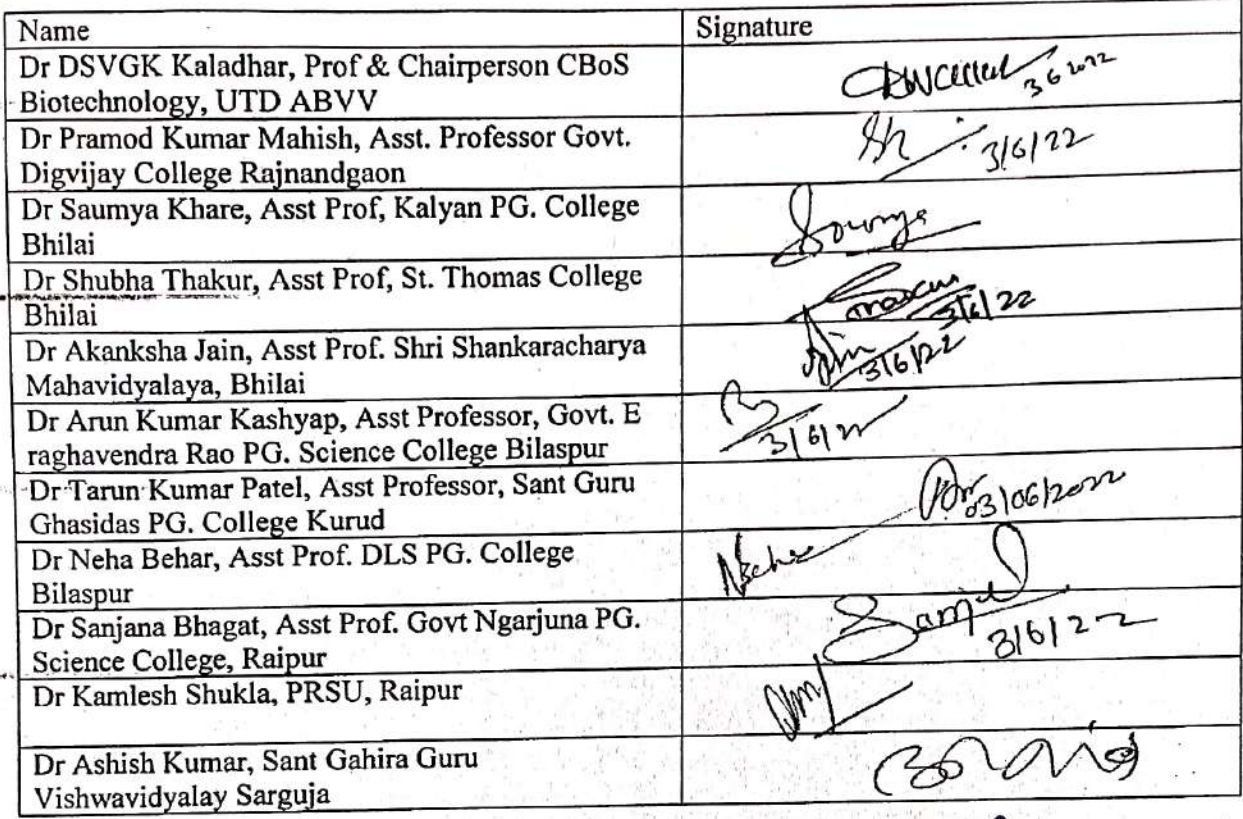 Name
Signature
Dr DSVGK Kaladhar, Prof & Chairperson CBoS
Biotechnology, UTD ABVV
3 6 2022
Dr Pramod Kumar Mahish, Asst. Professor Govt.
Digvijay College Rajnandgaon
3/6/22
Dr Saumya Khare, Asst Prof, Kalyan PG. College
Bhilai
Dr Shubha Thakur, Asst Prof, St. Thomas College
Bhilai
3/6/22
Dr Akanksha Jain, Asst Prof. Shri Shankaracharya
Mahavidyalaya, Bhilai
3/6/22
Dr Arun Kumar Kashyap, Asst Professor, Govt. E
raghavendra Rao PG. Science College Bilaspur
3/6/22
Dr Tarun Kumar Patel, Asst Professor, Sant Guru
Ghasidas PG. College Kurud
03/06/2022
Dr Neha Behar, Asst Prof. DLS PG. College
Bilaspur
Dr Sanjana Bhagat, Asst Prof. Govt Ngarjuna PG.
Science College, Raipur
3/6/22
Dr Kamlesh Shukla, PRSU, Raipur
Dr Ashish Kumar, Sant Gahira Guru
Vishwavidyalay Sarguja